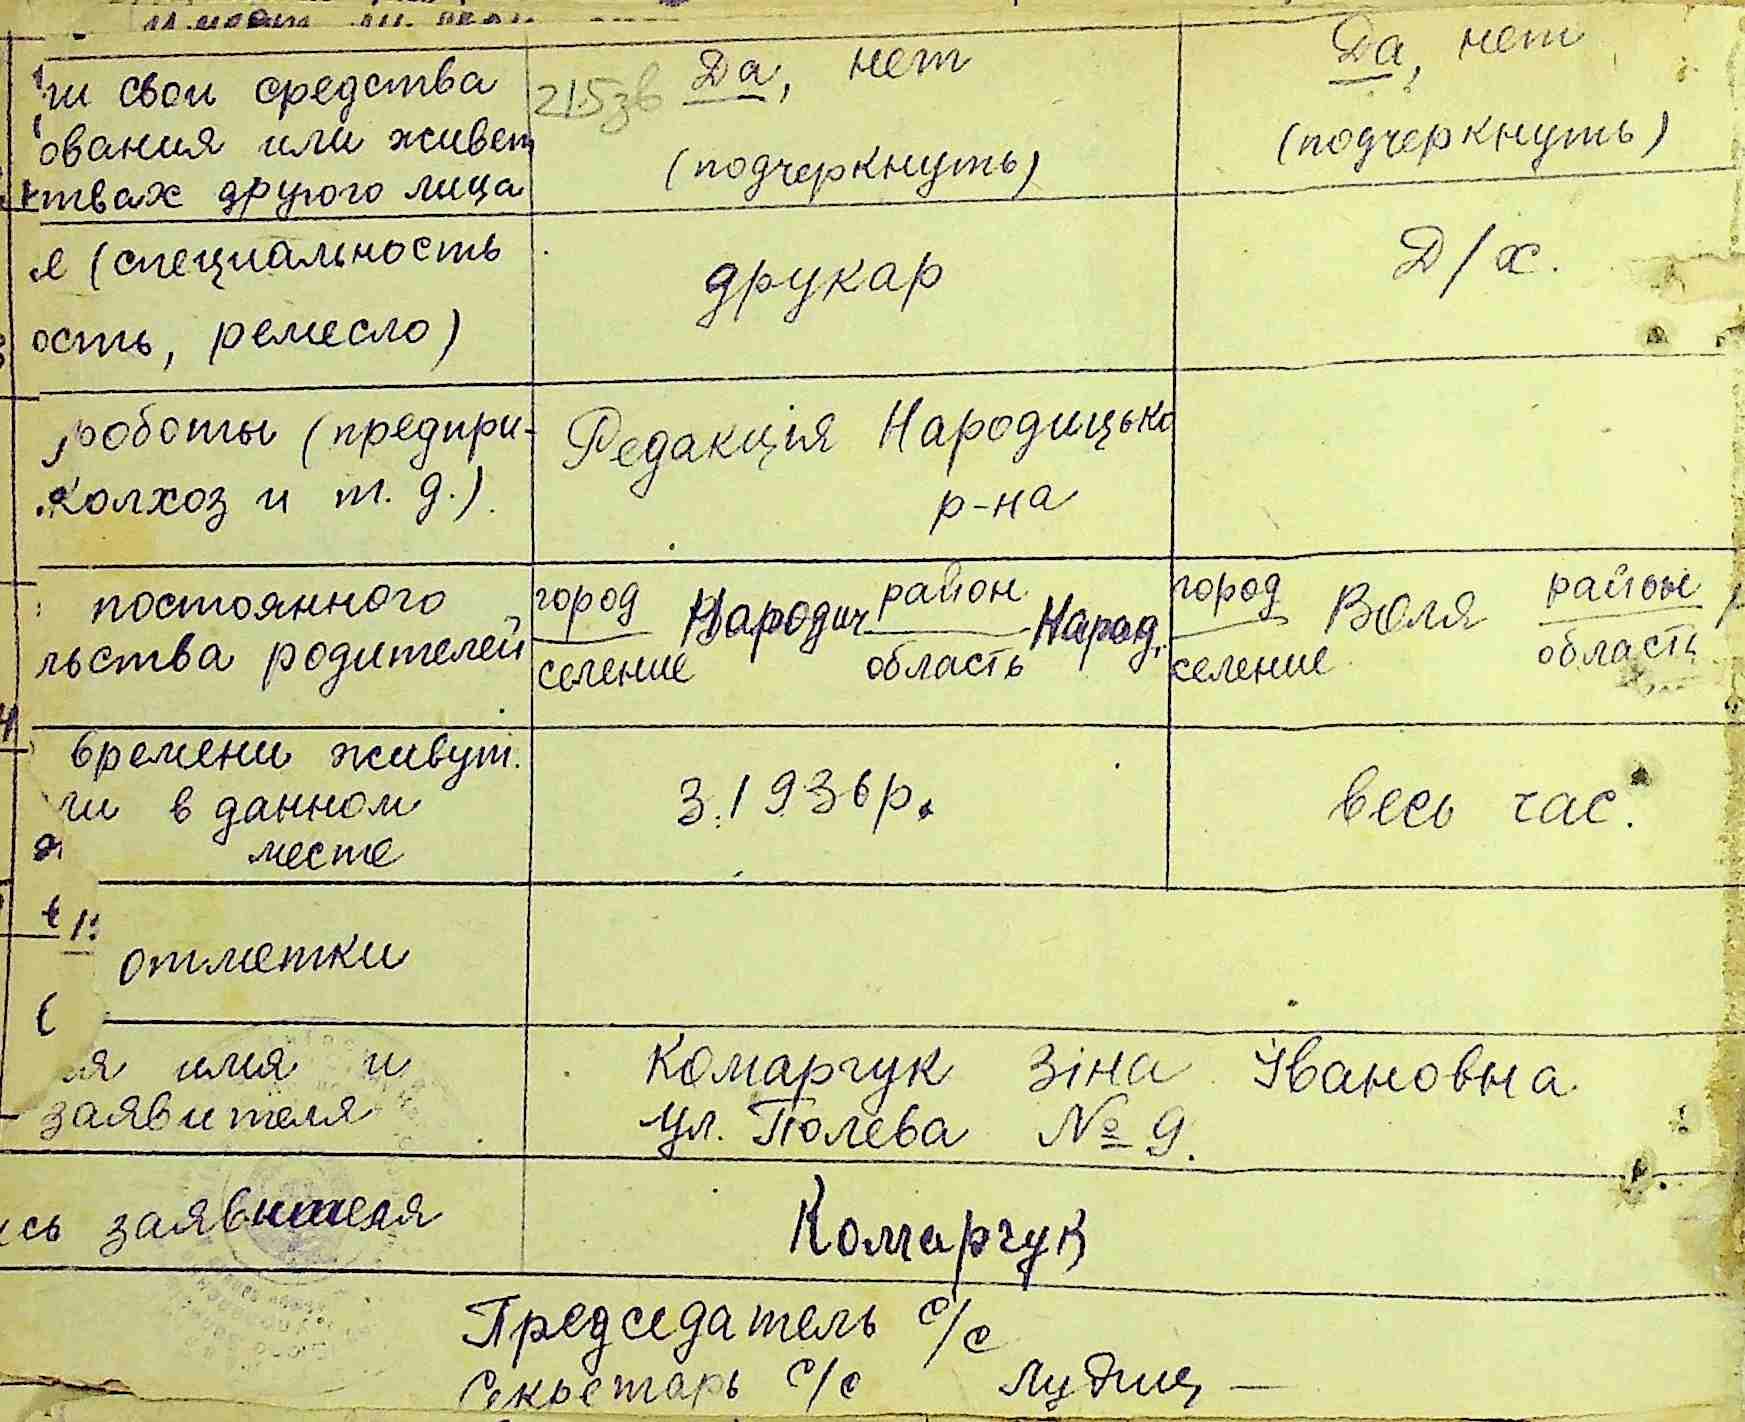 ли свои средства 215зв Да, нет Да, нет
ования или живет (подчеркнуть) (подчеркнуть)
ствах другого лица
е (специальность друкар Д/х.
ость, ремесло)
роботы (предпри- Редакція Народицько
колхоз и т. д.). р-на
постоянного город Народич район Народ. город Воля район
льства родителей селение область селение область
времени живут 3.1936р. весь час.
ли в данном
месте
отметки
ия имя и Комарчук Зіна Івановна
заявителя ул. Полева № 9.
ись заявителя Комарчук
Председатель с/с
Секретарь с/с